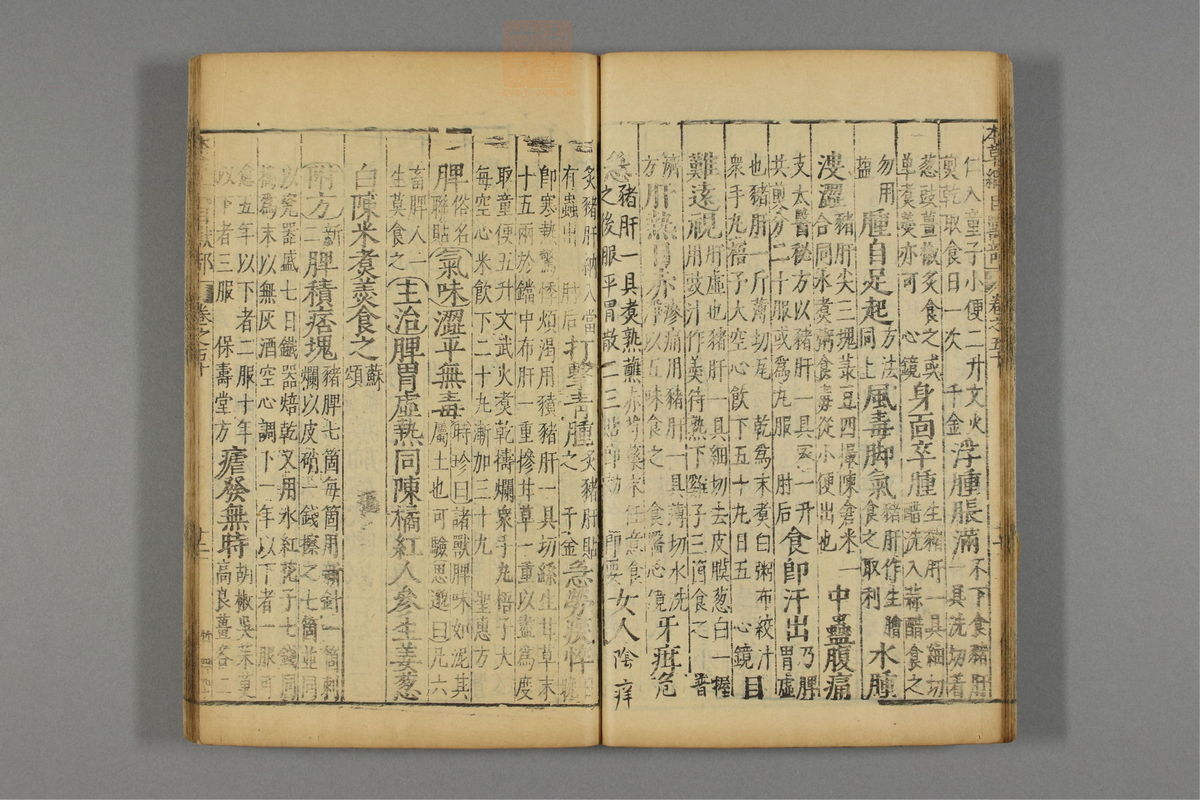 本草綱目獸部 卷之五十
仁入童子小便二升文火煎乾取食日一次 千金 浮腫脹滿 不下食豬肝一具洗切著
葱豉薑椒炙食之或單煮羹亦可 心鏡 身面卒腫 生豬肝一具細切醋洗入蒜醋食之
勿用鹽 腫自足起 方法同上 風毒脚氣 豬肝作生膾食之取利 水腫
溲澀 豬肝尖三塊菉豆四撮陳倉米一合同水煮粥食毒從小便出也 中蠱腹痛
支太醫秘方以豬肝一具蜜一升共煎分二十服或爲丸服 肘后 食即汗出 乃脾胃虛
也豬肝一斤薄切瓦 乾爲末煮白粥布絞汁衆手丸梧子大空心飲下五十丸日五 心鏡 目
難遠視 肝虛也豬肝一具細切去皮膜葱白一握用豉汁作羹待熟下雞子三箇食之 普
濟方 肝熱目赤 磣痛用豬肝一具薄切水洗淨以五味食之 食醫心鏡 牙疳危
急 豬肝一具煮熟蘸赤芍藥末任意食之後服平胃散二三貼即効 節要 女人陰痒
炙豬肝納入當有蟲出 肘后 打擊青腫 炙豬肝貼之 千金 急勞瘦悴 日晚
即寒熱驚悸煩渴用豶豬肝一具切絲生甘草末十五兩於鐺中布肝一重摻甘草一重以盡爲度
取童便五升文武火煮乾擣爛衆手丸梧子大每空心米飲下二十丸漸加三十丸 聖惠方
脾 俗名聯貼 氣味 澀平無毒 時珍曰諸獸脾味如泥其屬土也可驗思邈曰凡六
畜脾人一生莫食之 主治 脾胃虛熱同陳橘紅人參生姜葱
白陳米煮羹食之 蘇頌
附方 新二 脾積痞塊 豬脾七箇每箇用新針一箇刺爛以皮硝一錢擦之七箇並同
以瓷器盛七日鐵器焙乾又用水紅花子七錢同擣爲末以無灰酒空心調下一年以下者一服可
愈五年以下者二服十年以下者三服 保壽堂方 瘧發無時 胡椒吳茱萸高良薑各二